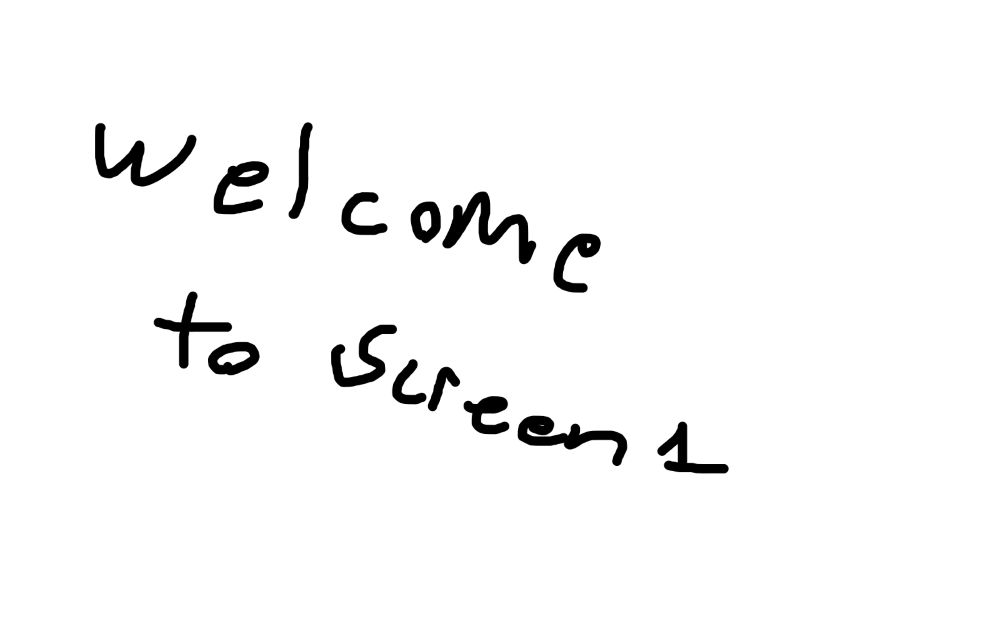 Welcome
to screen 1